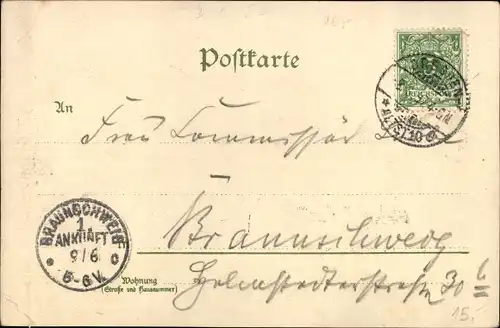 Postkarte
An
Frau Commissär
Braunschweig
Wohnung
(Straße und Hausnummer)
Helmstedterstraße 30
BRAUNSCHWEIG
1
ANKUNFT
9/6
5-6 V.
c
*ALTST.10
15,-